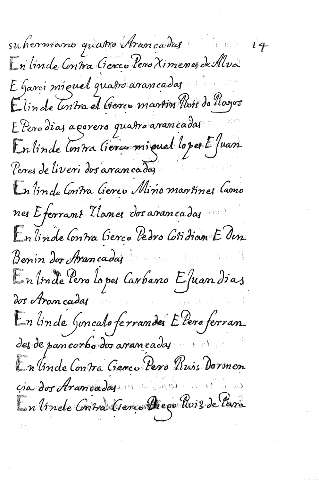 su hermano quatro Arancadas
14
En linde Contra Cierco Pero Ximenes de Alva
E Garci miguel quatro arancadas
E linde Contra el Cierco martin Ruis do Rayos
E Pero dias agorero quatro arancadas
En linde Contra Cierco miguel lopes E Juan
Peres de liveri dos arancadas
En linde Contra Cierco Mino martines Camo
nes E ferrant Llanes dos arancadas
En linde Contra Cierco Pedro Cotidian E Don
Benin dos Arancadas
En linde Pero lopes Carbano E Juan dias
dos Arancadas
En linde Goncalo ferrandes E Pero ferran
des de pancorbo dos arancadas
En linde Contra Cierco Pero Ruis Dormen
cia dos Arancadas
En linde Contra Cierco Diego Ruiz de Para